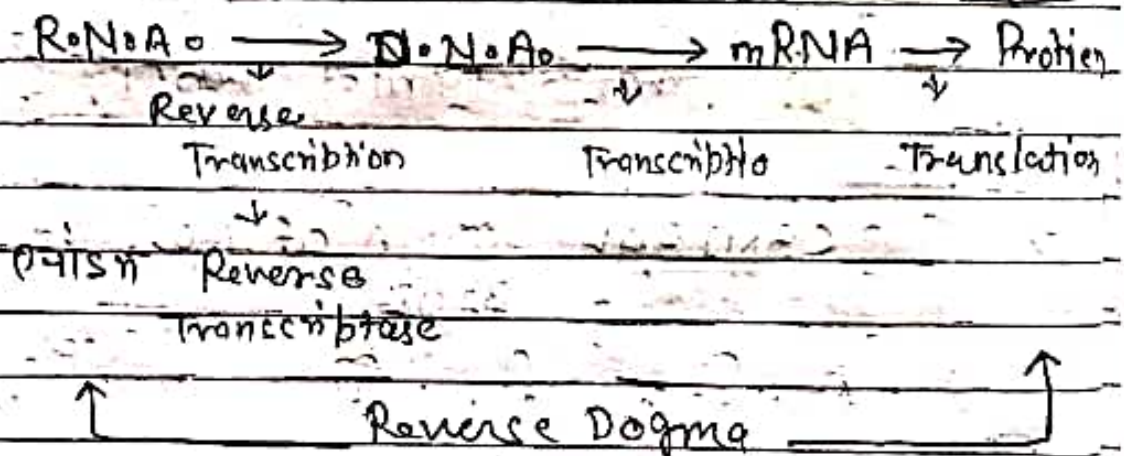 R.N.A. → D.N.A. → mRNA → Protien
↓ ↓ ↓
Reverse
Transcription Transcriptio Translation
↓
Reverse
Transcriptase
Reverse Dogma